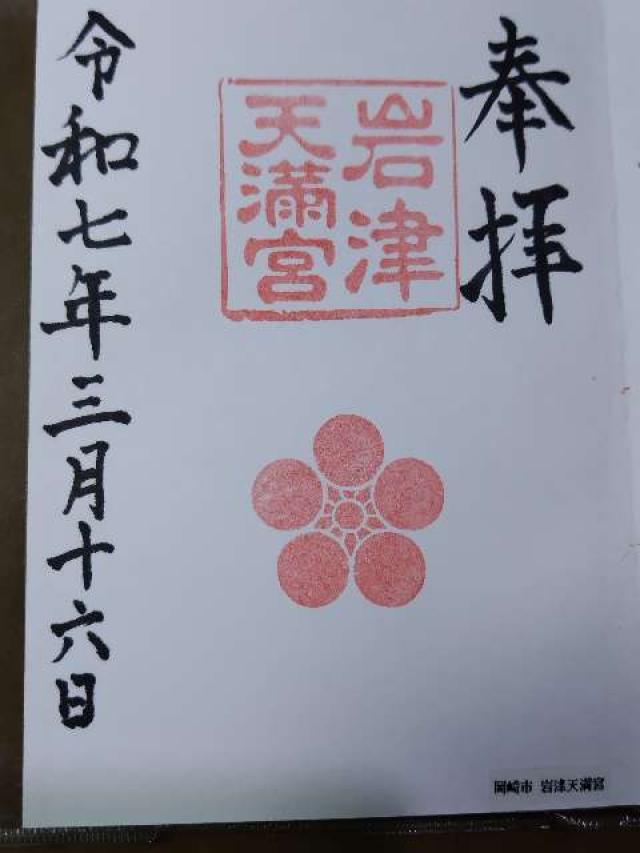 奉拝
岩津
天満宮
令和七年三月十六日
岡崎市 岩津天満宮